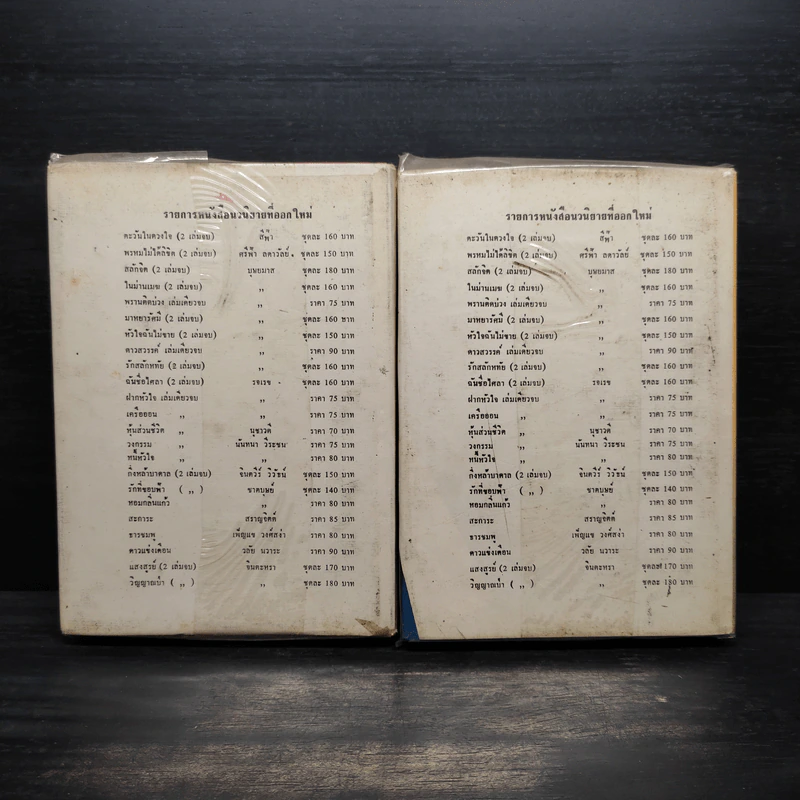 รายการหนังสือนวนิยายที่ออกใหม่
ตะวันในดวงใจ (2 เล่มจบ) สีฟ้า ชุดละ 160 บาท
พรหมไม่ได้ลิขิต (2 เล่มจบ) ศรีฟ้า ลดาวัลย์ ชุดละ 150 บาท
สลักจิต (2 เล่มจบ) บุษยมาส ชุดละ 180 บาท
ในม่านเมฆ (2 เล่มจบ) ,, ชุดละ 160 บาท
พรานติดบ่วง เล่มเดียวจบ ,, ราคา 75 บาท
มาหยารัศมี (2 เล่มจบ) ,, ชุดละ 160 บาท
หัวใจฉันไม่ขาย (2 เล่มจบ) ,, ชุดละ 150 บาท
ดาวสวรรค์ เล่มเดียวจบ ,, ราคา 90 บาท
รักสลักหทัย (2 เล่มจบ) ,, ชุดละ 160 บาท
ฉันชื่อใศลา (2 เล่มจบ) รจเรข ชุดละ 160 บาท
ฝากหัวใจ เล่มเดียวจบ ,, ราคา 75 บาท
เครือออน ,, ,, ราคา 75 บาท
หุ้นส่วนชีวิต ,, นุชาวดี ราคา 70 บาท
วงกรรม ,, นันทนา วีระชน ราคา 75 บาท
หนี้หัวใจ ,, ,, ราคา 80 บาท
กิ่งหล้าบาดาล (2 เล่มจบ) จินตวีร์ วิวัธน์ ชุดละ 150 บาท
รักที่ขอบฟ้า ( ,, ) ชาตบุษย์ ชุดละ 140 บาท
หอมกลิ่นแก้ว ,, ราคา 80 บาท
สะการะ สราญจิตต์ ราคา 85 บาท
ธารชมพู เพ็ญแข วงศ์สง่า ราคา 80 บาท
ดาวแข่งเดือน วลัย นวาระ ราคา 90 บาท
แสงสูรย์ (2 เล่มจบ) จินตะหรา ชุดละ 170 บาท
วิญญาณเป่า ( ,, ) ,, ชุดละ 180 บาท
รายการหนังสือนวนิยายที่ออกใหม่
ตะวันในดวงใจ (2 เล่มจบ) สีฟ้า ชุดละ 160 บาท
พรหมไม่ได้ลิขิต (2 เล่มจบ) ศรีฟ้า ลดาวัลย์ ชุดละ 150 บาท
สลักจิต (2 เล่มจบ) บุษยมาส ชุดละ 180 บาท
ในม่านเมฆ (2 เล่มจบ) ,, ชุดละ 160 บาท
พรานติดบ่วง เล่มเดียวจบ ,, ราคา 75 บาท
มาหยารัศมี (2 เล่มจบ) ,, ชุดละ 160 บาท
หัวใจฉันไม่ขาย (2 เล่มจบ) ,, ชุดละ 150 บาท
ดาวสวรรค์ เล่มเดียวจบ ,, ราคา 90 บาท
รักสลักหทัย (2 เล่มจบ) ,, ชุดละ 160 บาท
ฉันชื่อใศลา (2 เล่มจบ) รจเรข ชุดละ 160 บาท
ฝากหัวใจ เล่มเดียวจบ ,, ราคา 75 บาท
เครือออน ,, ,, ราคา 75 บาท
หุ้นส่วนชีวิต ,, นุชาวดี ราคา 70 บาท
วงกรรม ,, นันทนา วีระชน ราคา 75 บาท
หนี้หัวใจ ,, ,, ราคา 80 บาท
กิ่งหล้าบาดาล (2 เล่มจบ) จินตวีร์ วิวัธน์ ชุดละ 150 บาท
รักที่ขอบฟ้า ( ,, ) ชาตบุษย์ ชุดละ 140 บาท
หอมกลิ่นแก้ว ,, ราคา 80 บาท
สะการะ สราญจิตต์ ราคา 85 บาท
ธารชมพู เพ็ญแข วงศ์สง่า ราคา 80 บาท
ดาวแข่งเดือน วลัย นวาระ ราคา 90 บาท
แสงสูรย์ (2 เล่มจบ) จินตะหรา ชุดละ 170 บาท
วิญญาณเป่า ( ,, ) ,, ชุดละ 180 บาท